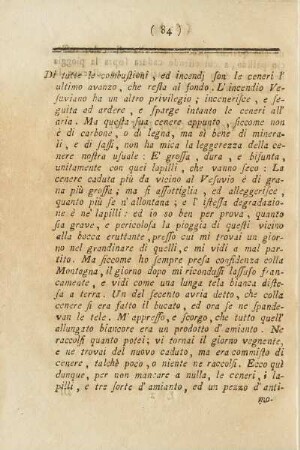 ( 84 )
Di tutte le combustioni, ed incendj son le ceneri l'
ultimo avanzo, che resta al fondo. L'incendio Ve-
suviano ha un altro privilegio; inceneri­sce, e se-
guita ad ardere, e sparge intanto le ceneri all'
aria. Ma questa sua cenere appunto, siccome non
è di carbone, o di legna, ma sì bene di minera-
li, e di sassi, non ha mica la leggerezza della ce-
nere nostra usuale: E' grossa, dura, e bisunta,
unitamente con quei lapilli, che vanno seco: La
cenere caduta più da vicino al Vesuvio è di gra-
na più grossa; ma si assottiglia, ed alleggerisce,
quanto più se n'allontana; e l'istessa degradazio-
ne è ne' lapilli: ed io so ben per prova, quanto
sia grave, e pericolosa la pioggia di questi vicino
alla bocca eruttante, presso cui mi trovai un gior-
no nel grandinare di quelli, e mi vidi a mal par-
tito. Ma siccome ho sempre presa confidenza colla
Montagna, il giorno dopo mi ricondussi lassuso fran-
camente, e vidi come una lunga tela bianca diste-
sa a terra. Un del secento avria detto, che colla
cenere si era fatto il bucato, ed ora se ne spande-
van le tele. M'appresso, e scorgo, che tutto quell'
allungato biancore era un prodotto d'amianto. Ne
raccolsi quanto potei; vi tornai il giorno vegnente,
e ne trovai del nuovo caduto, ma era commisto di
cenere, talchè poco, o niente ne raccolsi. Ecco quì
dunque, per non mancare a nulla, le ceneri, i la-
pilli, e tre sorte d'amianto, ed un pezzo d'anti-
mo-